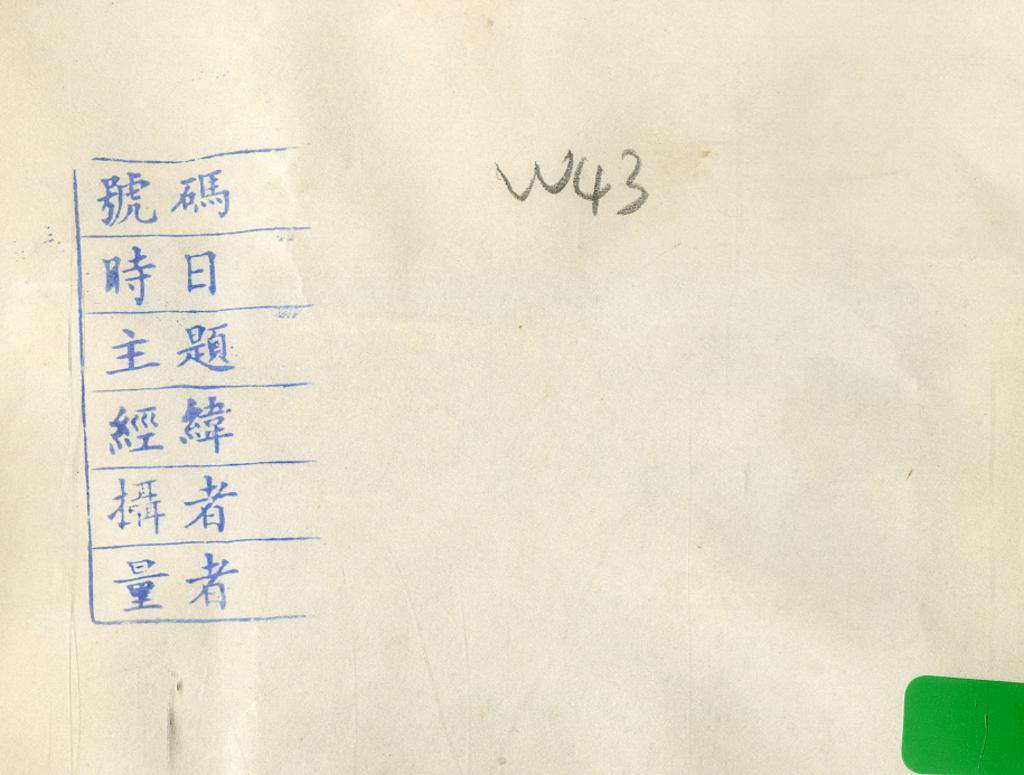 號碼
W43
時日
主題
經緯
攝者
量者